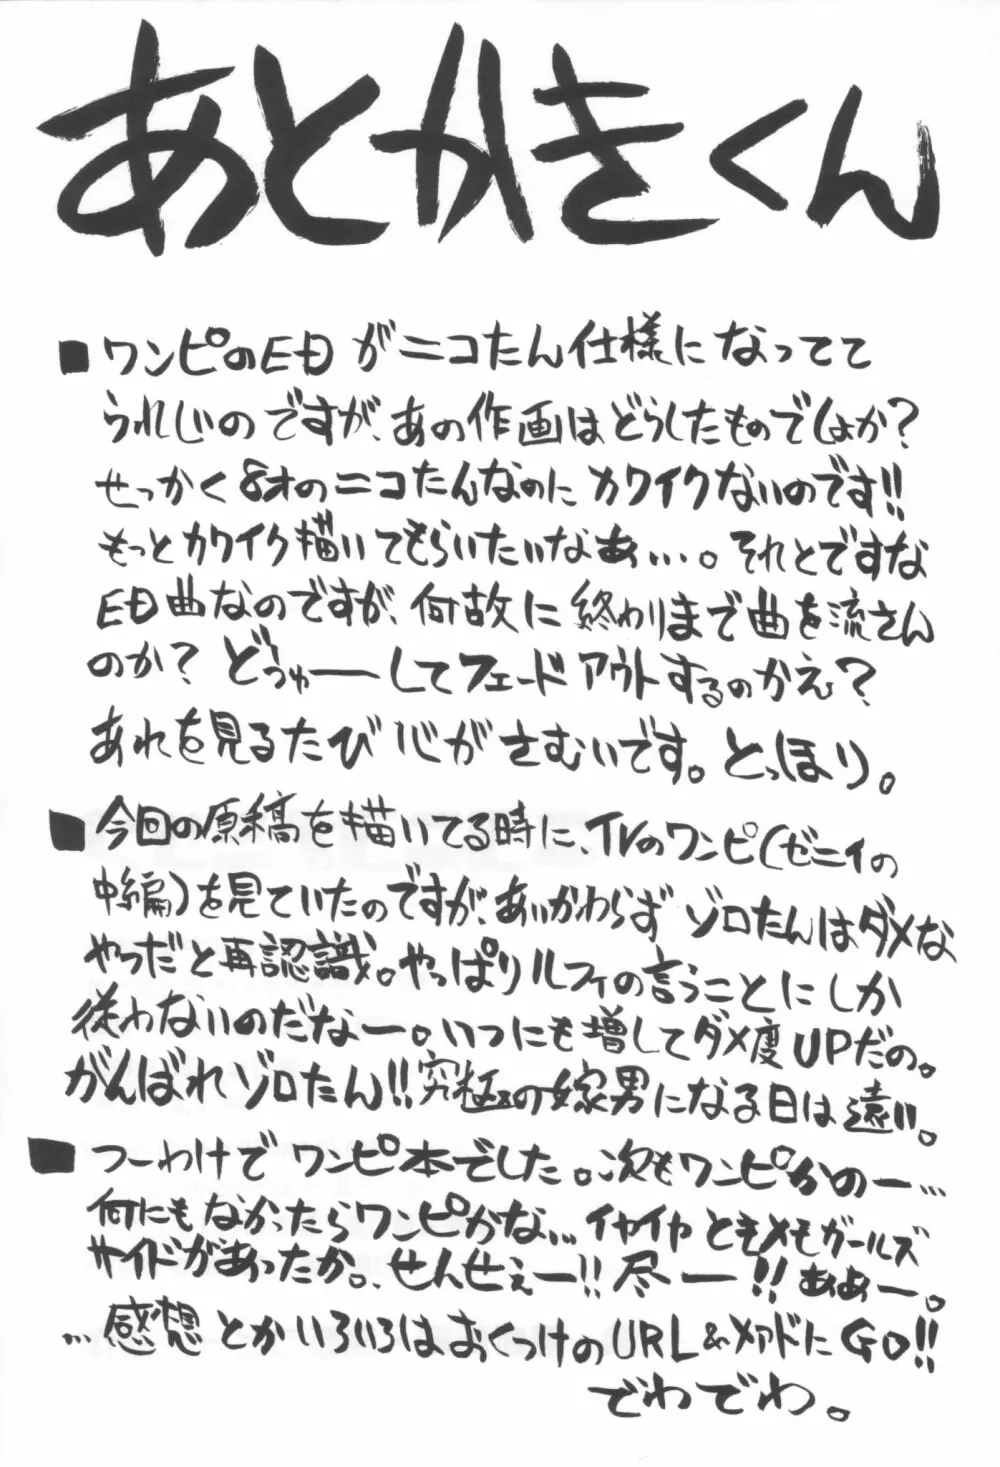 あとがきくん
■ワンピのEDがニコたん仕様になってて
うれしいのですが、あの作画はどうしたものでしょか?
せっかく8才のニコたんなのにカワイクないのです!!
もっとカワイク描いてもらいたいなぁ…。それとですな
ED曲なのですが、何故に終わりまで曲を流さん
のか? どぅしゅーしてフェードアウトするのかえ?
あれを見るたび心がさむいです。とっほり。
■今回の原稿を描いてる時に、TVのワンピ(ゼニィの
中編)を見ていたのですが、あいかわらずゾロたんはダメな
やつだと再認識。やっぱりルフィの言うことにしか
従わないのだなー。いつにも増してダメ度UPだの。
がんばれゾロたん!!究極の嫁男になる日は遠い。
■つーわけでワンピ本でした。次もワンピかのー…
何にもなかったらワンピかな…イヤイヤときメモガールズ
サイドがあったか。せんせぇー!!尽ー!!ああー。
…感想とかいろいろはおくつけのURL&メアドにGO!!
でわでわ。